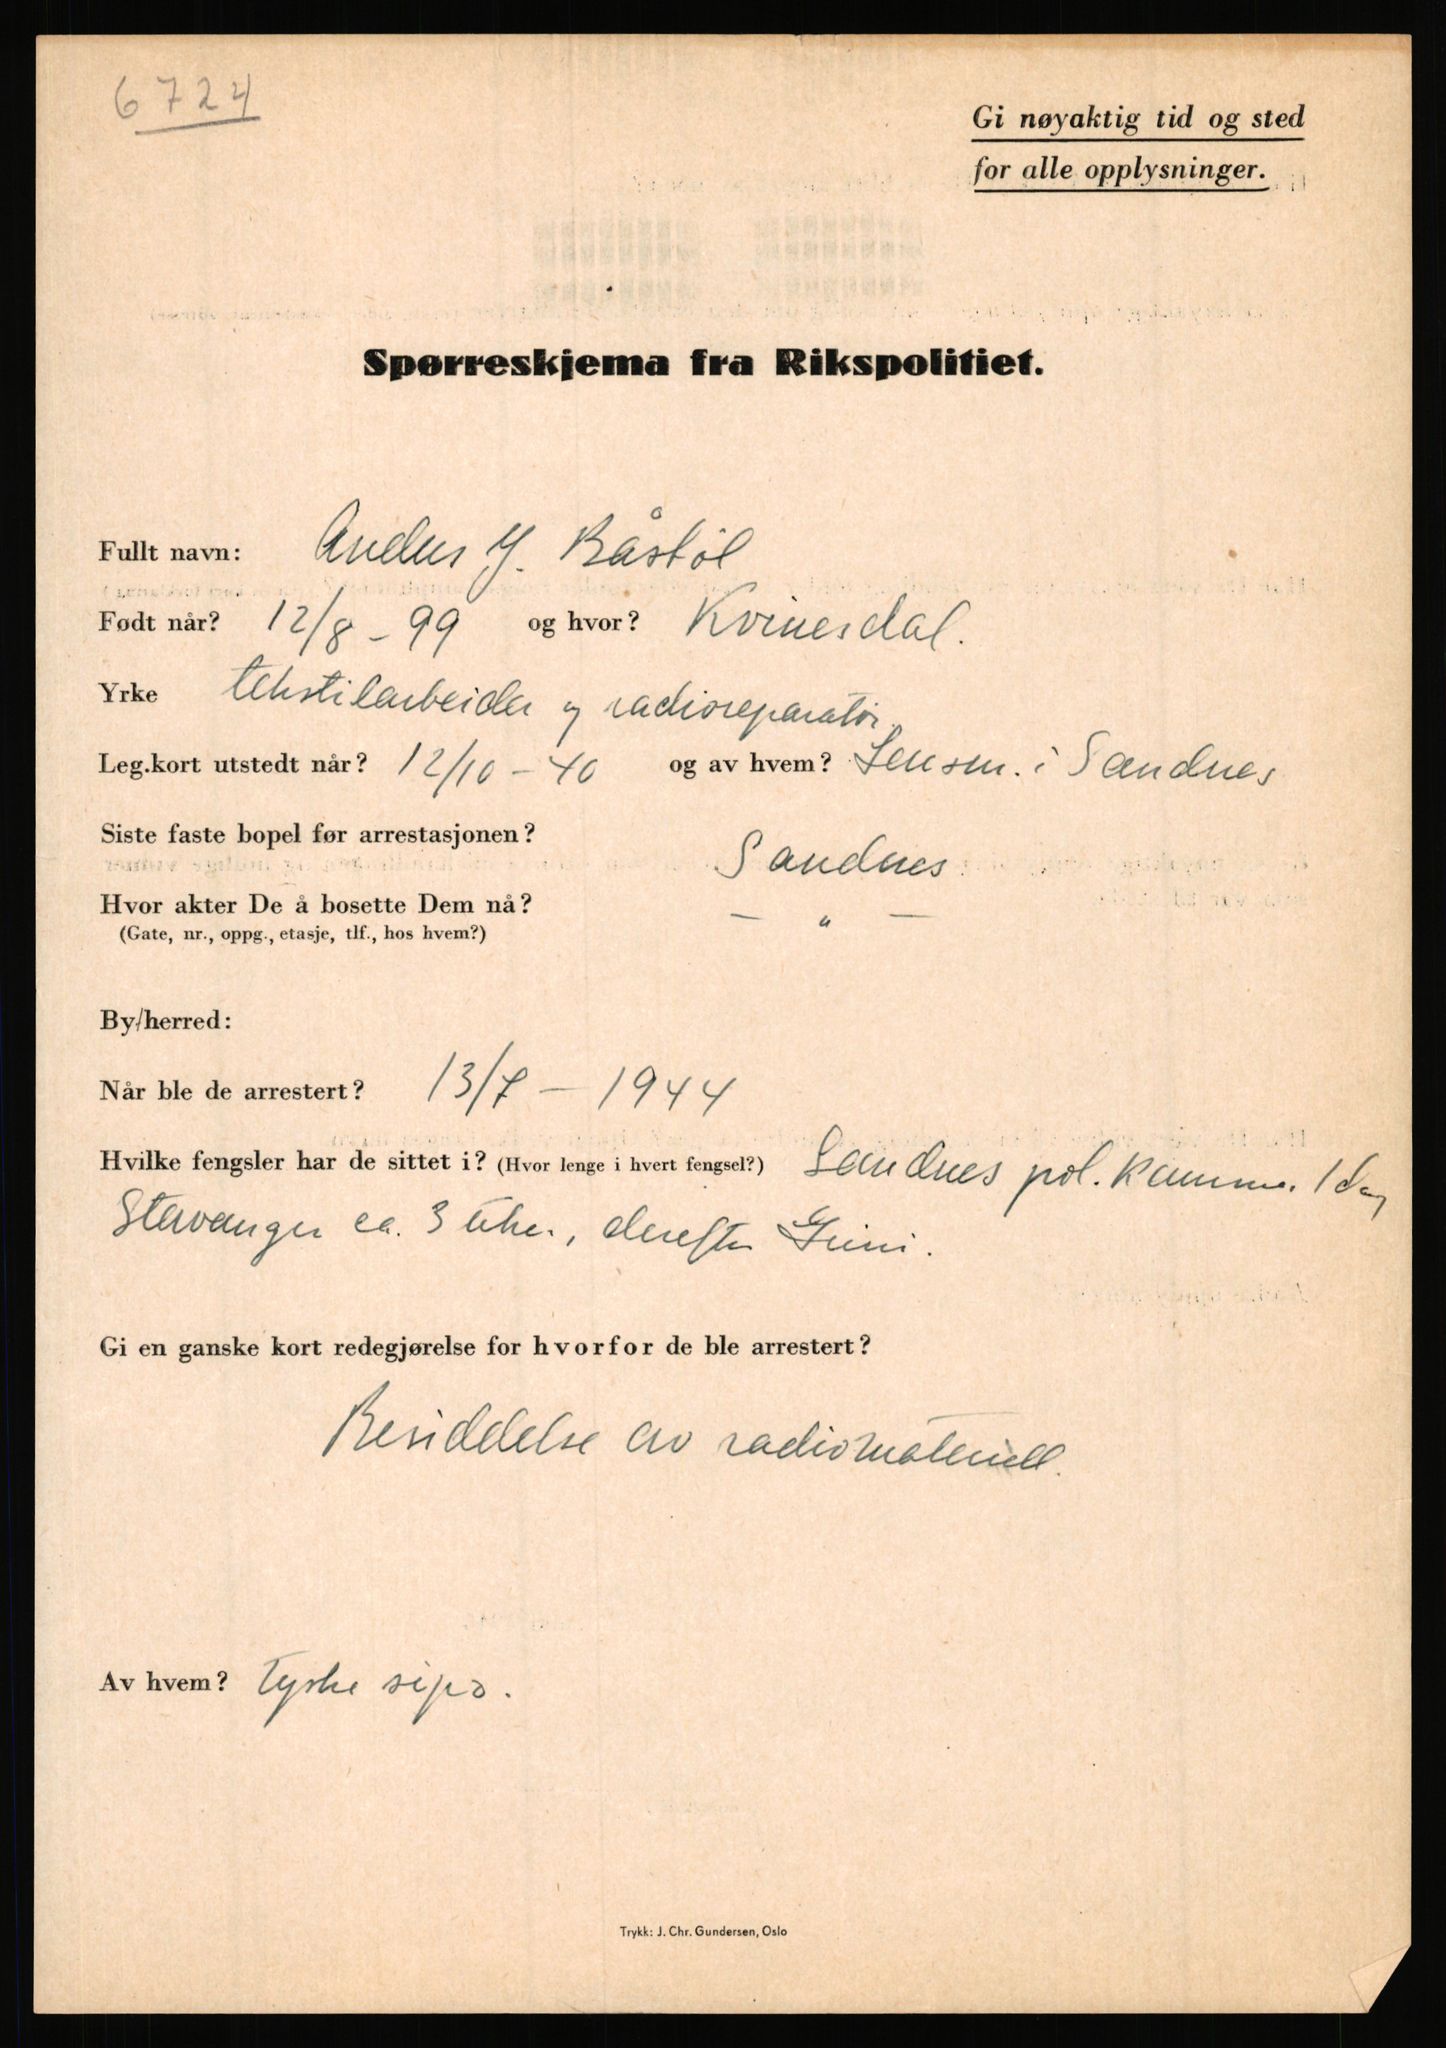 6724
Gi nøyaktig tid og sted
for alle opplysninger.
Spørreskjema fra Rikspolitiet.
Fullt navn: Anders Y. Båstøl
Født når? 12/8 - 99 og hvor? Kvinesdal.
Yrke tekstilarbeider og radioreparatør.
Leg.kort utstedt når? 12/10 - 40 og av hvem? Lensm. i Sandnes
Siste faste bopel før arrestasjonen? Sandnes
Hvor akter De å bosette Dem nå? — " —
(Gate, nr., oppg., etasje, tlf., hos hvem?)
By/herred:
Når ble de arrestert? 13/7 — 1944
Hvilke fengsler har de sittet i? (Hvor lenge i hvert fengsel?) Sandnes pol. kammer 1 dag
Stavanger ca. 3 uker, derefter Grini.
Gi en ganske kort redegjørelse for hvorfor de ble arrestert?
Besiddelse av radiomateriell.
Av hvem? tyske sipo.
Trykk: J. Chr. Gundersen, Oslo